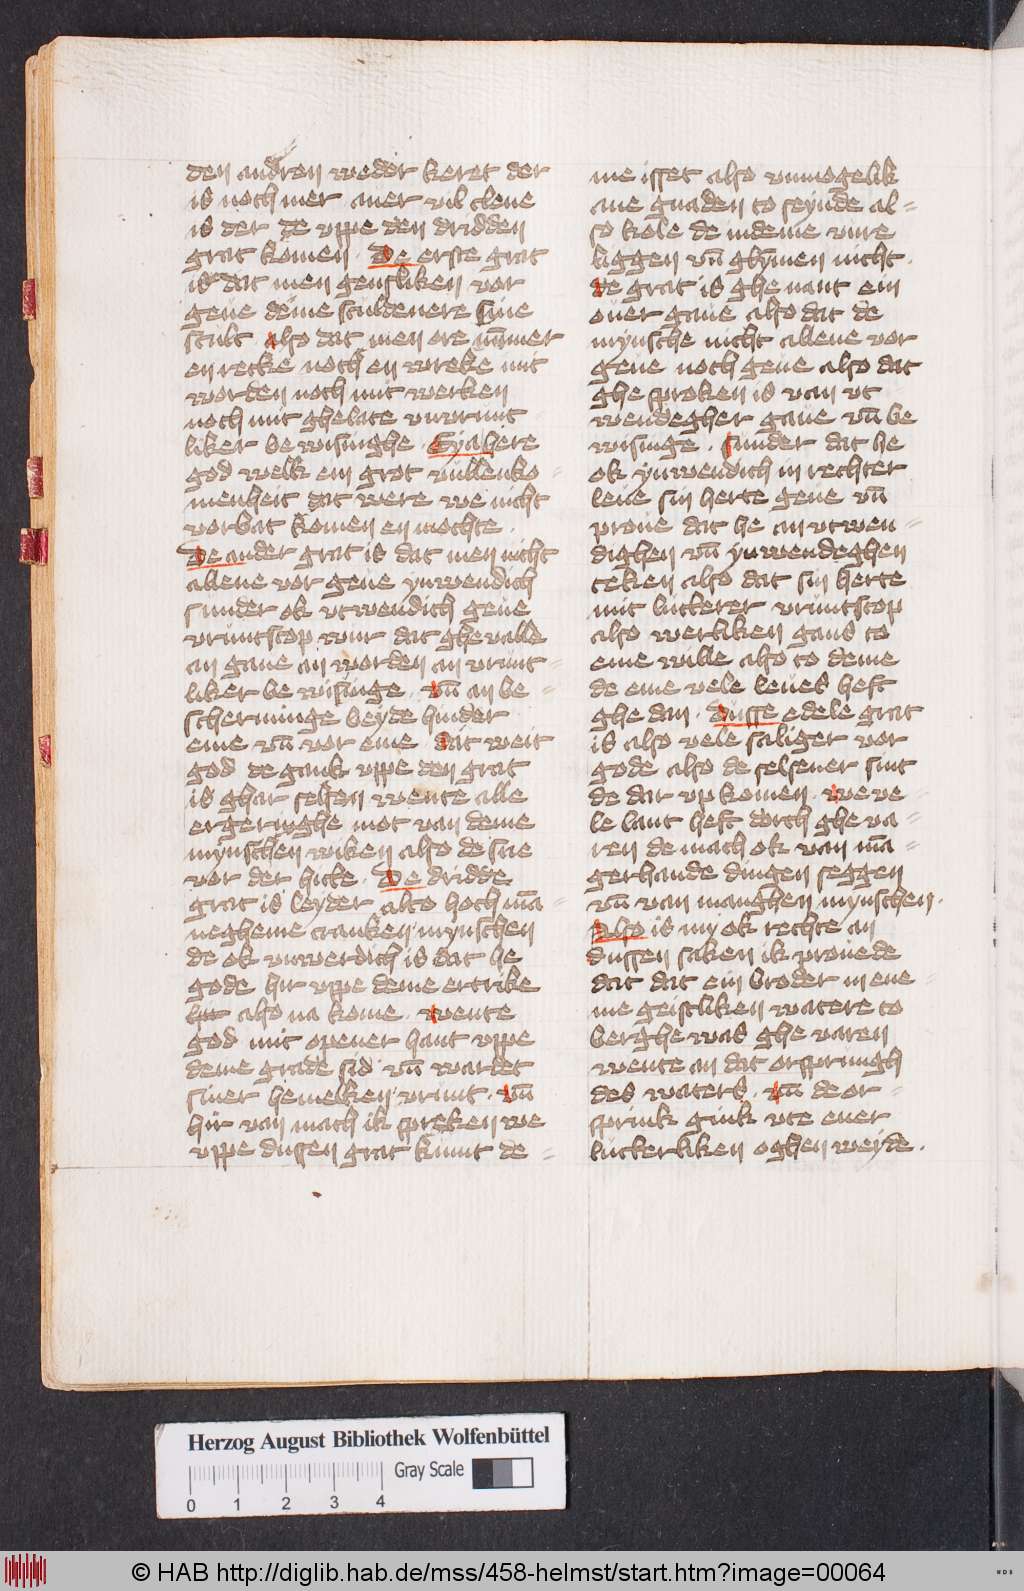 den andren weder keret der
is noch mer auer vil clene
is der de vppe den dridden
grat komen. De erste grat
is dat men gensliken vor
geue deme sculdenere sine
scult. also dat men ore nummer
en recke noch en wreke mit
worden noch mit werken
noch mit ghelate vnvrunt
liker bewisinghe. Eya here
god welk ein grot vullenko-
menheit dat were we nicht
vorbat komen en mochte.
De ander grat is dat men nicht
allene vor geue ynwendich
sunder ok vtwendich geue
vruntscop wur dat ghe valle
an gaue an worden an vrunt-
liker be wisinge. vn̄ an be-
scherminge beyde hinder
eme vn̄ vor eme. dat weit
god de gank vppe den grat
is ghar selsen wente alle
ergeringhe mot van deme
mynschen wiken also de sne
vor der hicte. De dridde
grat is leyder alto hoch ma-
negheme cranken mynschen
de ok vnwerdich is dat he
gode hir vppe deme ertrike
also na kome. wente
god mit opener hant vppe
deme grade sid vn̄ wardet
siner hemelken vrunt. vn̄
hir van mach ik spreken we
vppe dussen grat kumt de-
me isset also vnmogelik
ane gnaden to seynde al-
so kole de in deme vure
liggen vn̄ ghymen nicht.
de grat is ghe nant ein
ouer gaue also dat de
mynsche nicht allene vor
geue noch geue also dat
ghe sproken is van vt
wendegher gaue vn̄ be
wisinge. sunder dat he
ok ynwendich in rechter
leue sin herte geue vn̄
proue dat he an vtwen-
dighen vn̄ ynwendeghen
teken also dat sin herte
mit luckerer vruntscop
also werliken gans to
eme wille also to deme
de eme vele leues heft
ghe dan. Dusse edele grat
is also vele saliger vor
gode also de selsener sint
de dar vp komen. we ve-
le lant heft dorch ghe va-
ren de mach ok van ma-
gerhande dingen seggen
vn̄ van manghen mynschen.
Also is my ok rechte an
dussen saken ik prouede
dat dat ein broder in ene-
me geistliken watere to
berghe was ghe varen
wente an dat orsprungh
des waters. vn̄ de or-
sprink gink vte ener
luckerliken oghen weyde.
Herzog August Bibliothek Wolfenbüttel
Gray Scale
0 1 2 3 4
© HAB http://diglib.hab.de/mss/458-helmst/start.htm?image=00064